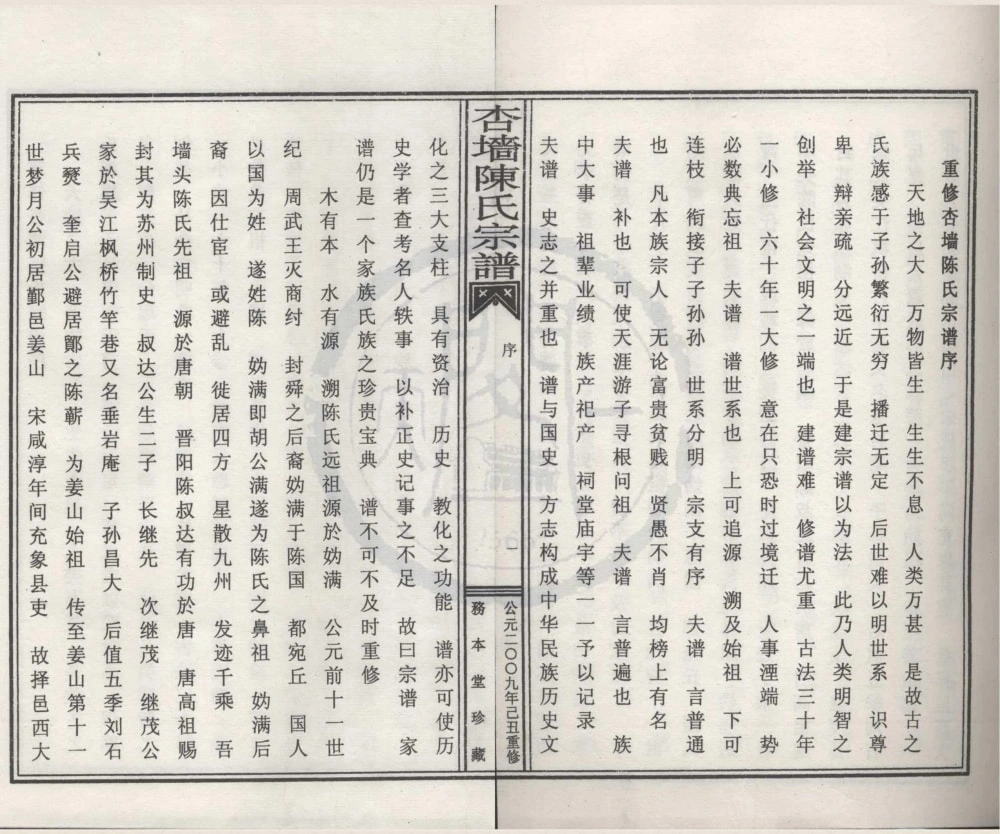 重修杏墙陈氏宗谱序
天地之大 万物皆生 生生不息 人类万甚 是故古之
氏族感于子孙繁衍无穷 播迁无定 后世难以明世系 识尊
卑 辩亲疏 分远近 于是建宗谱以为法 此乃人类明智之
创举 社会文明之一端也 建谱难 修谱尤重 古法三十年
一小修 六十年一大修 意在只恐时过境迁 人事湮端 势
必数典忘祖 夫谱 谱世系也 上可追源 溯及始祖 下可
连枝 衔接子子孙孙 世系分明 宗支有序 夫谱 言普通
也 凡本族宗人 无论富贵贫贱 贤愚不肖 均榜上有名
夫谱 补也 可使天涯游子寻根问祖 夫谱 言普遍也 族
中大事 祖辈业绩 族产祀产 祠堂庙宇等一一予以记录
夫谱 史志之并重也 谱与国史 方志构成中华民族历史文
杏墻陳氏宗譜
序
一
公元二〇〇九年己丑重修
務本堂珍藏
化之三大支柱 具有资治 历史 教化之功能 谱亦可使历
史学者查考名人轶事 以补正史记事之不足 故曰宗谱 家
谱仍是一个家族氏族之珍贵宝典 谱不可不及时重修
木有本 水有源 溯陈氏远祖源於妫满 公元前十一世
纪 周武王灭商纣 封舜之后裔妫满于陈国 都宛丘 国人
以国为姓 遂姓陈 妫满即胡公满遂为陈氏之鼻祖 妫满后
裔 因仕宦 或避乱 徙居四方 星散九州 发迹千乘 吾
墙头陈氏先祖 源於唐朝 晋阳陈叔达有功於唐 唐高祖赐
封其为苏州制史 叔达公生二子 长继先 次继茂 继茂公
家於吴江枫桥竹竿巷又名垂岩庵 子孙昌大 后值五季刘石
兵燹 奎启公避居鄮之陈蕲 为姜山始祖 传至姜山第十一
世梦月公初居鄞邑姜山 宋咸淳年间充象县吏 故择邑西大